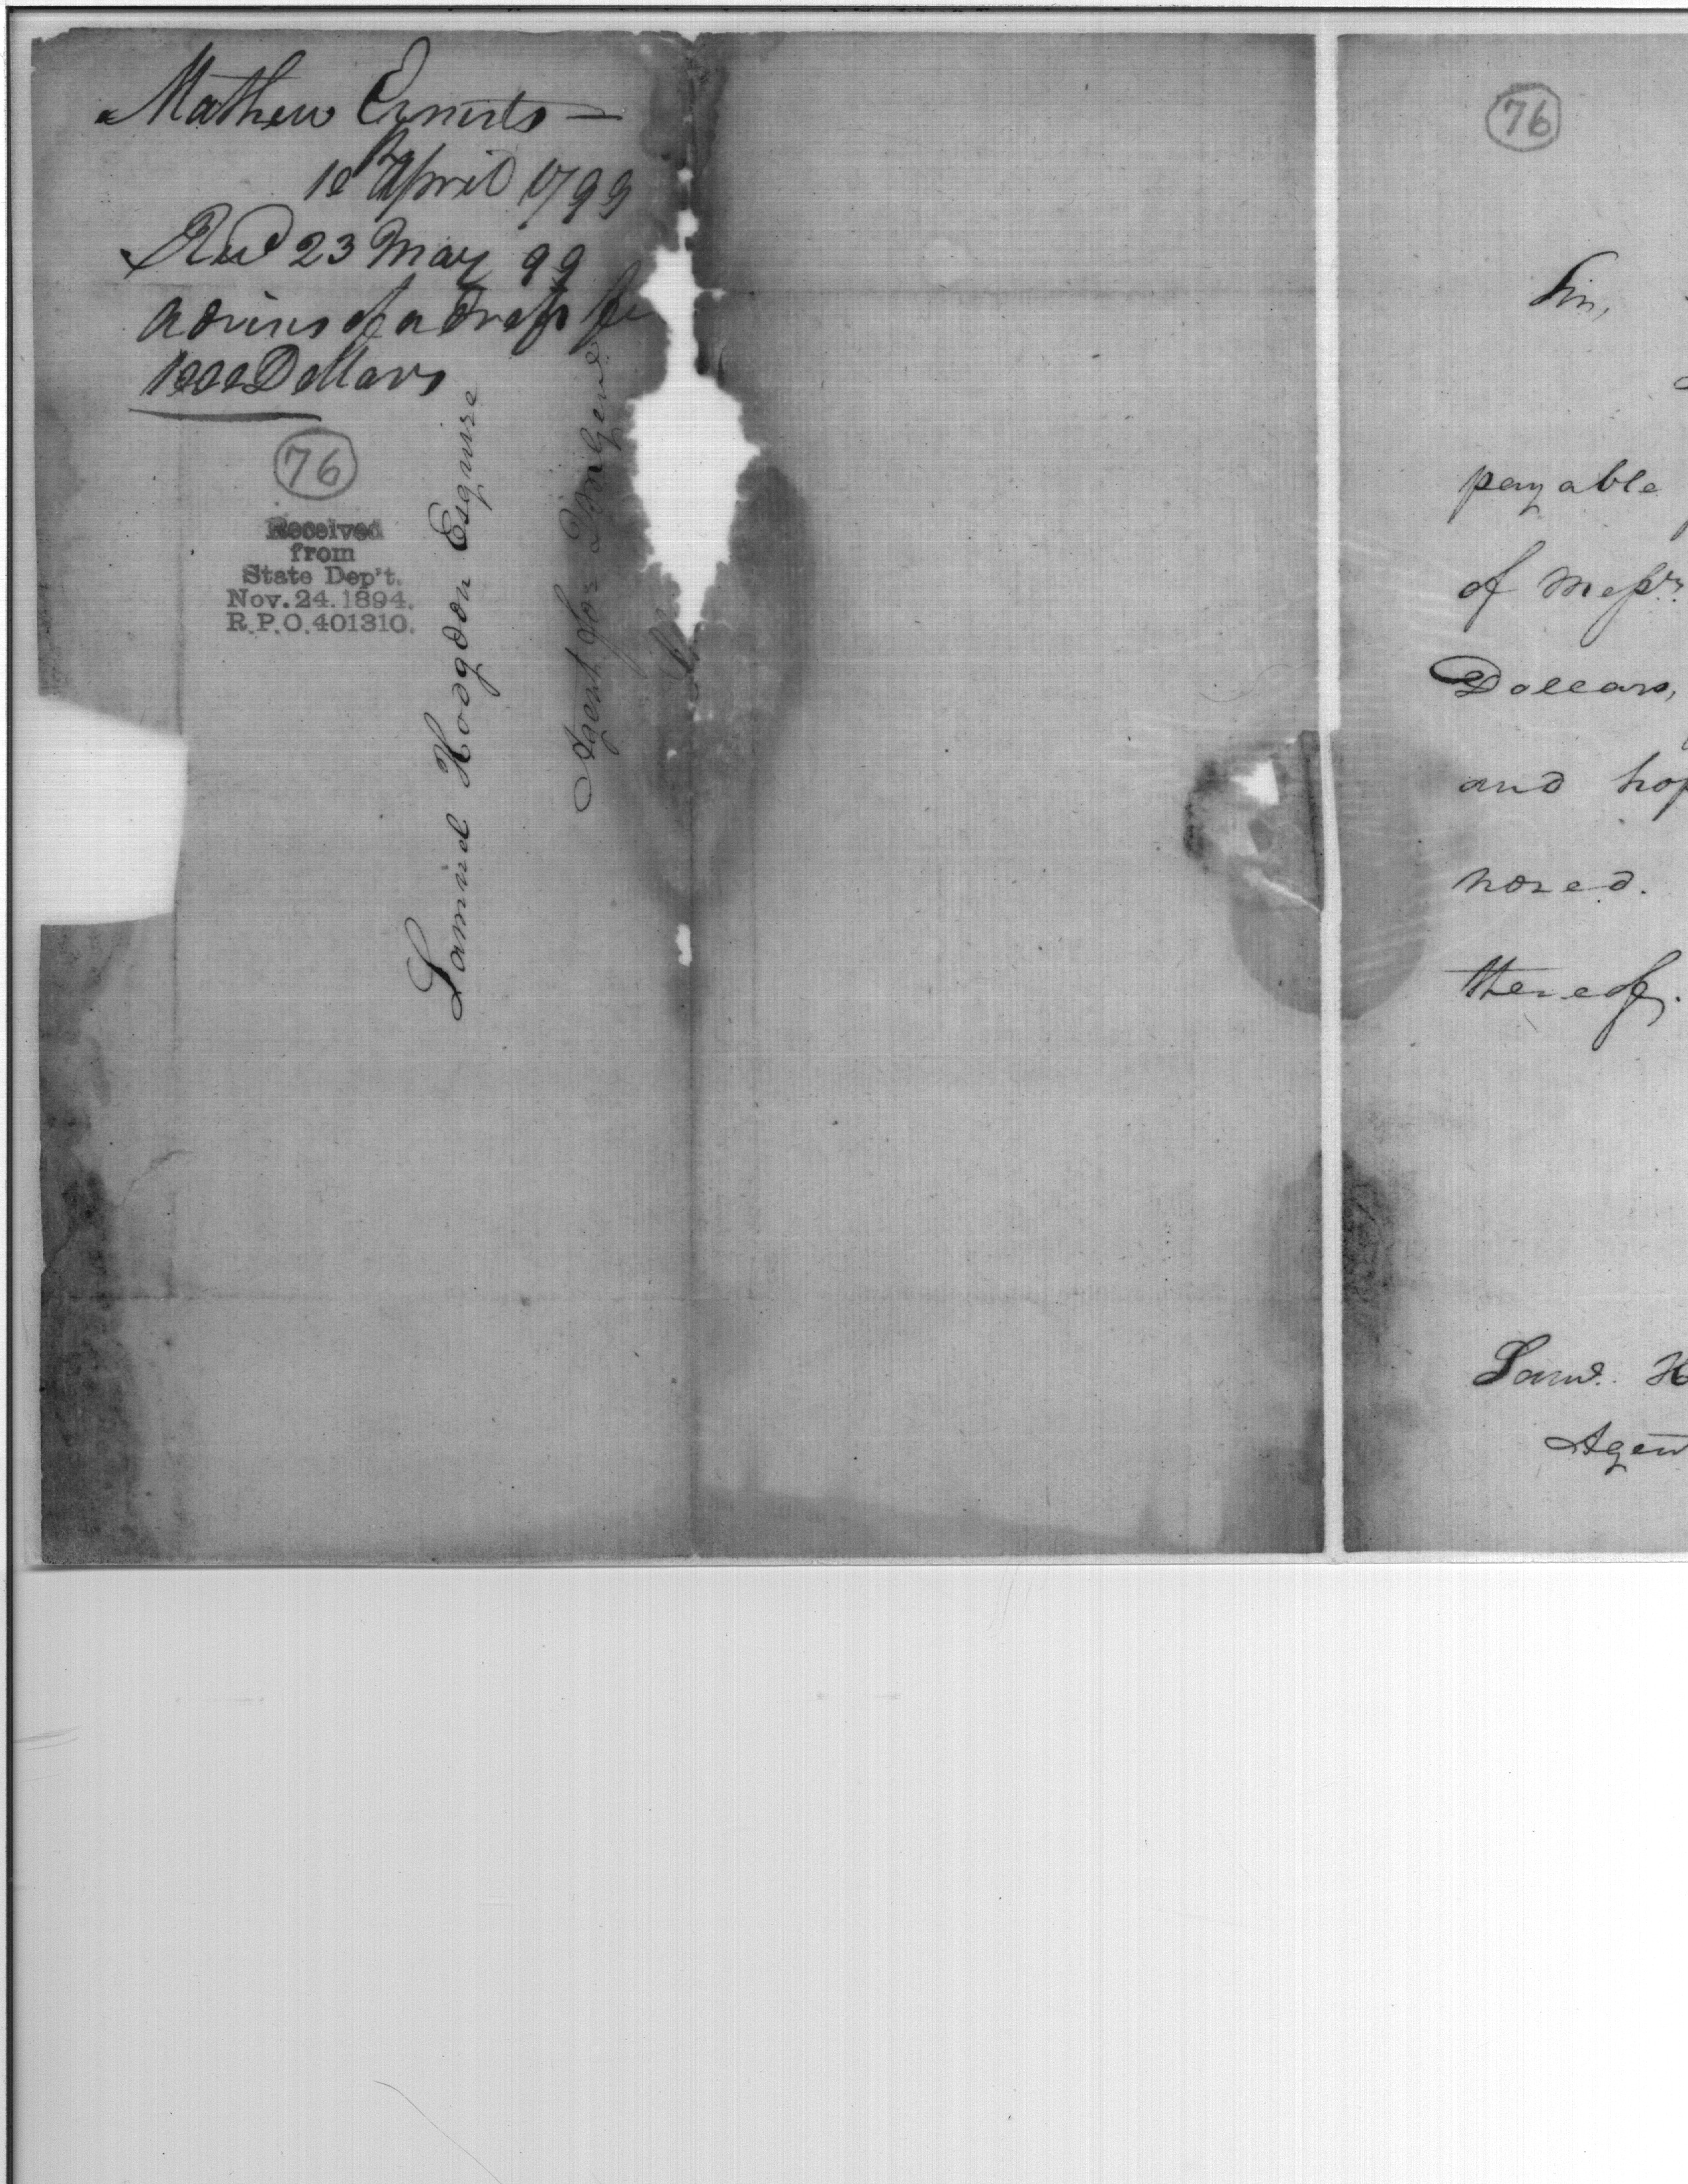 Mathew Ernests —
10th April 1799
Recd 23 May 99
advises of a draft for
1000 Dollars
76
Received
from
State Dep't.
Nov. 24. 1894.
R.P.O. 401310.
Samuel Hodgdon Esquire
Agent for
76
Sir,
payable
of Messrs.
Dollars,
and hop
nored.
thereof.
Saml. H
Agen